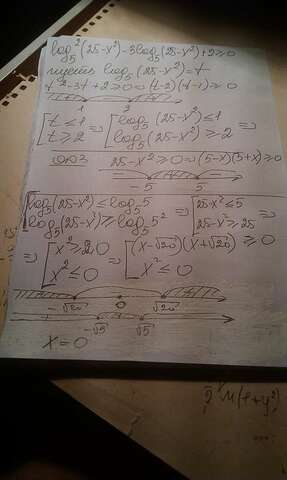 log₅²(25-x²)-3log₅(25-x²)+2≥0
пусть log₅(25-x²)=t
t²-3t+2≥0 ⇒ (t-2)(t-1)≥0
1 2
[t≤1 t≥2 ⇒ [log₅(25-x²)≤1 log₅(25-x²)≥2 ⇒
ОДЗ 25-x²≥0 ⇒ (5-x)(5+x)≥0
- -5 + 5 -
[log₅(25-x²)≤log₅5 log₅(25-x²)≥log₅5² ⇒ [25-x²≤5 25-x²≥25 ⇒
⇒ [x²≥20 x²≤0 ⇒ [(x-√20)(x+√20)≥0 x²≤0
-√20 0 √20
-√5 √5
x=0